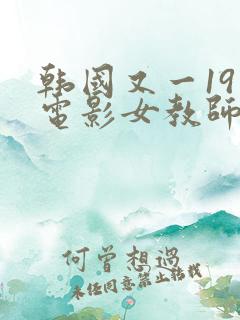 韩國又一19
電影女教師
何曾想過
未经同意禁止转载